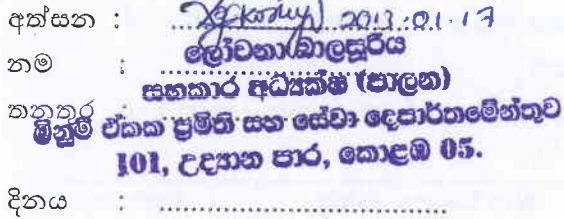 අත්සන : 2013.01.17
නම : ලෝචනා බාලසූරිය
සහකාර අධ්‍යක්ෂ (පාලන)
තනතුර :
මිනුම් ඒකක ප්‍රමිති සහ සේවා දෙපාර්තමේන්තුව
101, උද්‍යාන පාර, කොළඹ 05.
දිනය : ....................................